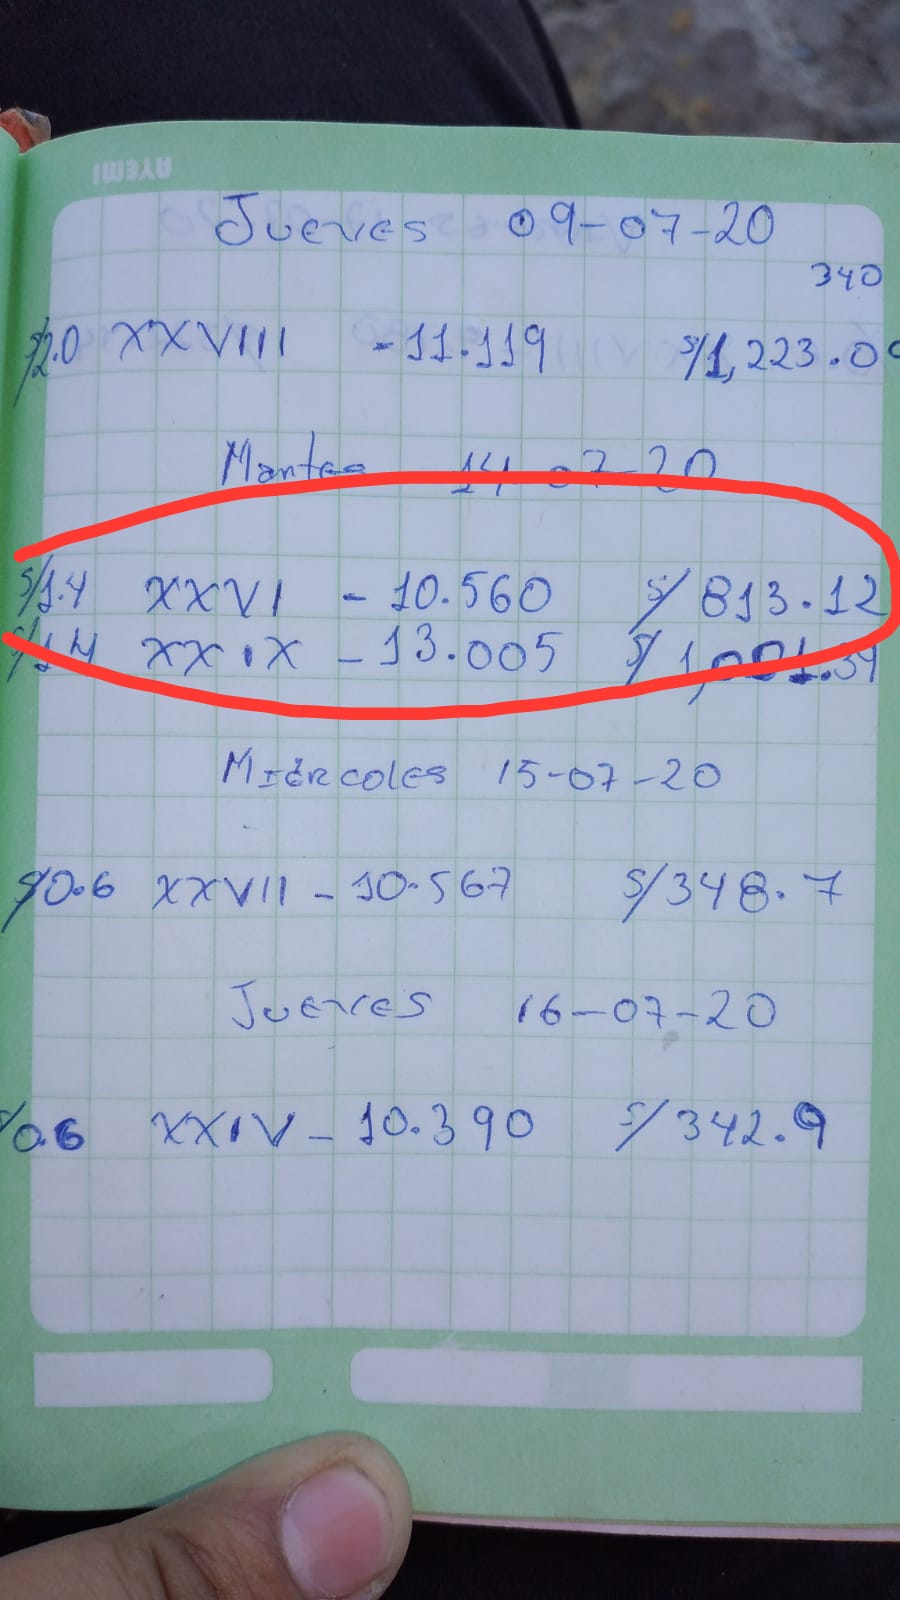 AYEMI
Jueves 09-07-20
340
S/2.0 XXVIII - 11.119 S/1,223.09
Martes 14-07-20
S/1.4 XXVI - 10.560 S/ 813.12
S/1.4 XXIX - 13.005 S/ 1,001.39
Miércoles 15-07-20
S/0.6 XXVII - 10.567 S/348.7
Jueves 16-07-20
S/0.6 XXIV - 10.390 S/342.9